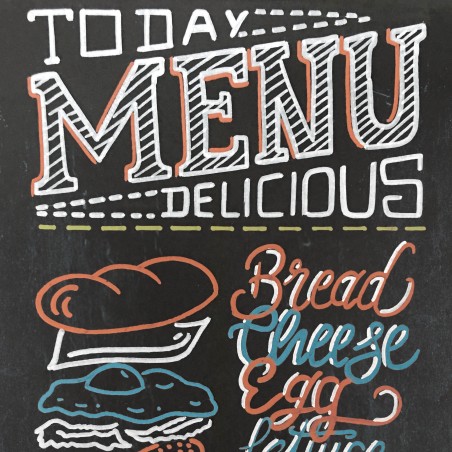 TODAY
MENU
DELICIOUS
Bread
Cheese
Egg